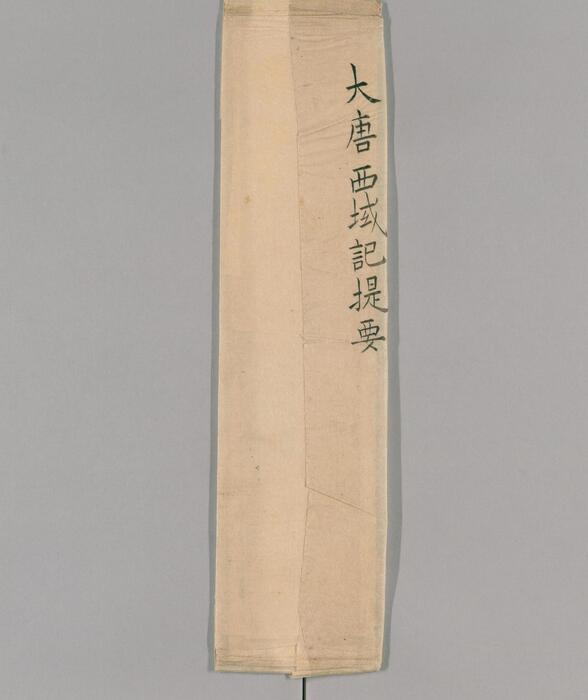 大唐西域記提要